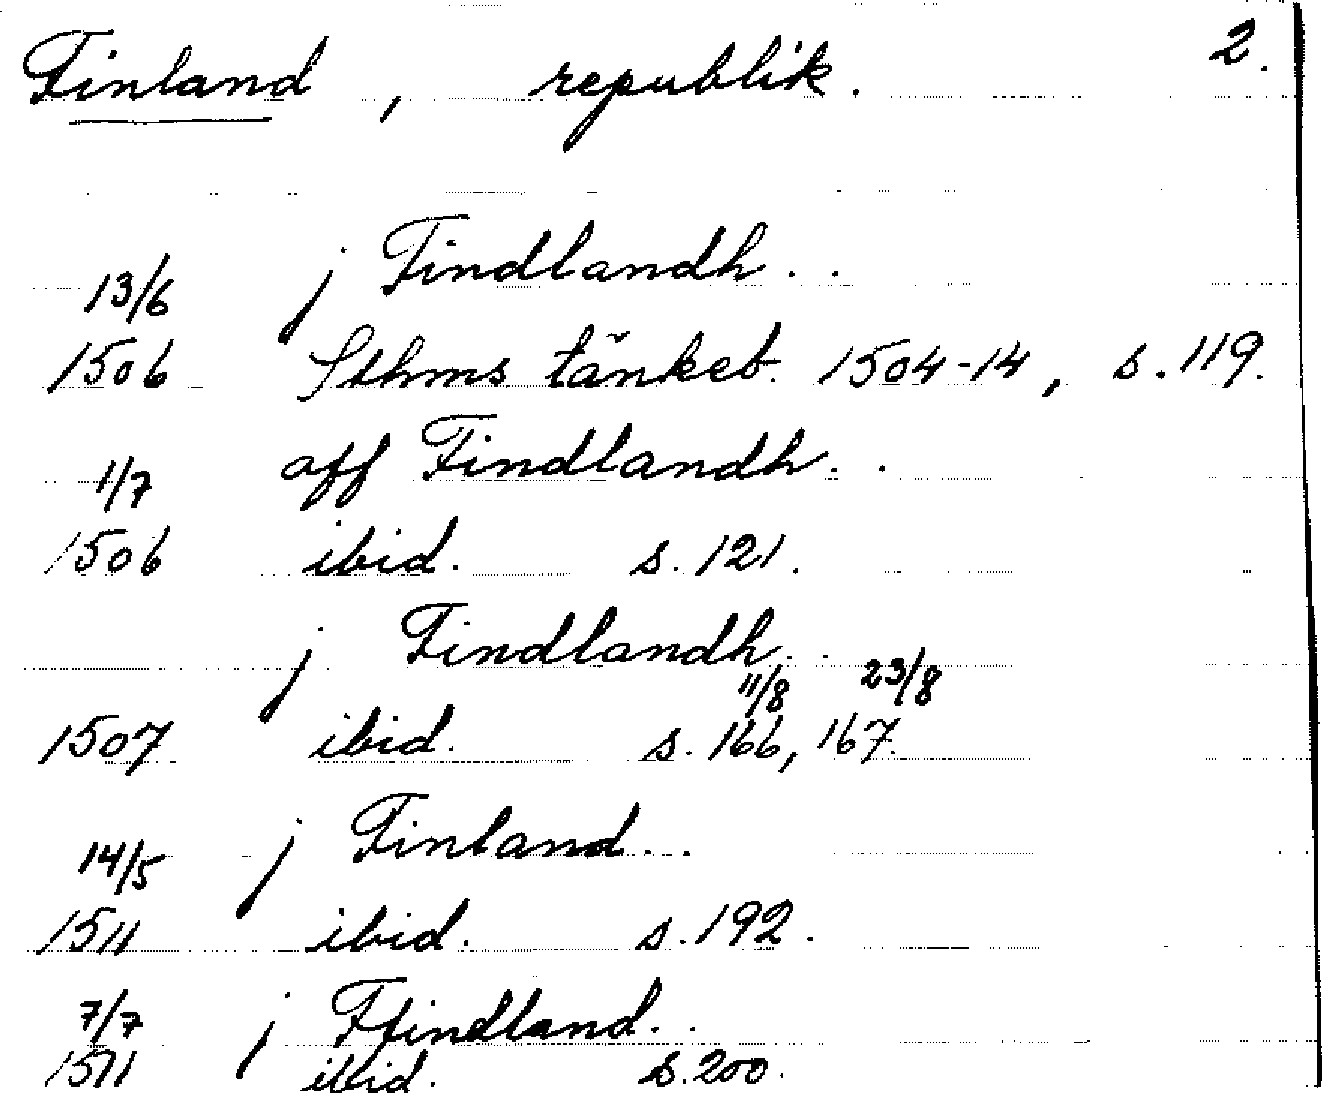 Finland, republik. 2.
13/6 j Findlandh..
1506 Sthms tänkeb. 1504-14, s. 119.
1/7 aff Findlandh..
1506 ibid. s. 121.
j Findlandh..
11/8 23/8
1507 ibid. s. 166, 167.
14/5 j Finland..
1511 ibid. s. 192.
7/7 j Ffindland..
1511 ibid. s. 200.